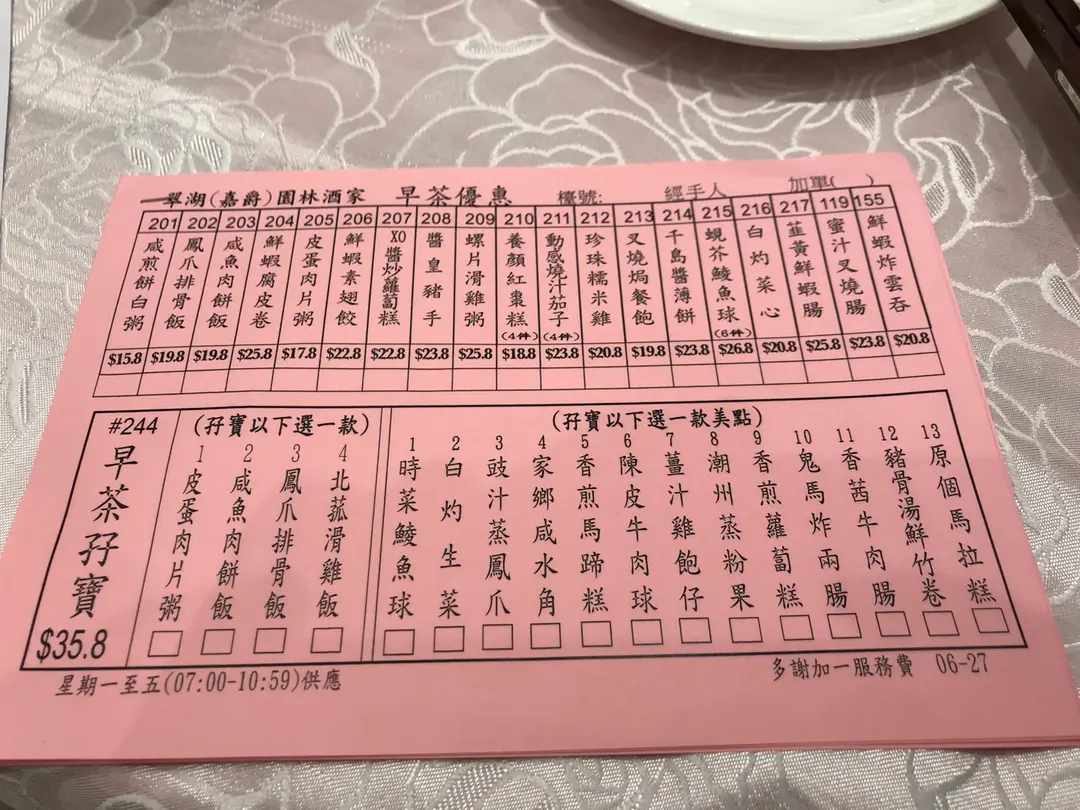 翠湖(嘉爵)園林酒家 早茶優惠 檯號: 經手人 加單( )
201 咸煎餅白粥 $15.8
202 鳳爪排骨飯 $19.8
203 咸魚肉餅飯 $19.8
204 鮮蝦腐皮卷 $25.8
205 皮蛋肉片粥 $17.8
206 鮮蝦素翅餃 $22.8
207 XO醬炒蘿蔔糕 $22.8
208 醬皇豬手 $23.8
209 螺片滑雞粥 $25.8
210 養顏紅棗糕(4件) $18.8
211 動感燒汁茄子(4件) $23.8
212 珍珠糯米雞 $20.8
213 叉燒焗餐飽 $19.8
214 千島醬薄餅 $23.8
215 蜆芥鯪魚球(6件) $26.8
216 白灼菜心 $20.8
217 韮黃鮮蝦腸 $25.8
119 蜜汁叉燒腸 $23.8
155 鮮蝦炸雲吞 $20.8
#244
早茶孖寶
$35.8
(孖寶以下選一款)
1 皮蛋肉片粥
2 咸魚肉餅飯
3 鳳爪排骨飯
4 北菰滑雞飯
(孖寶以下選一款美點)
1 時菜鯪魚球
2 白灼生菜
3 豉汁蒸鳳爪
4 家鄉咸水角
5 香煎馬蹄糕
6 陳皮牛肉球
7 薑汁雞飽仔
8 潮州蒸粉果
9 香煎蘿蔔糕
10 鬼馬炸兩腸
11 香茜牛肉腸
12 豬骨湯鮮竹卷
13 原個馬拉糕
星期一至五(07:00-10:59)供應
多謝加一服務費 06-27